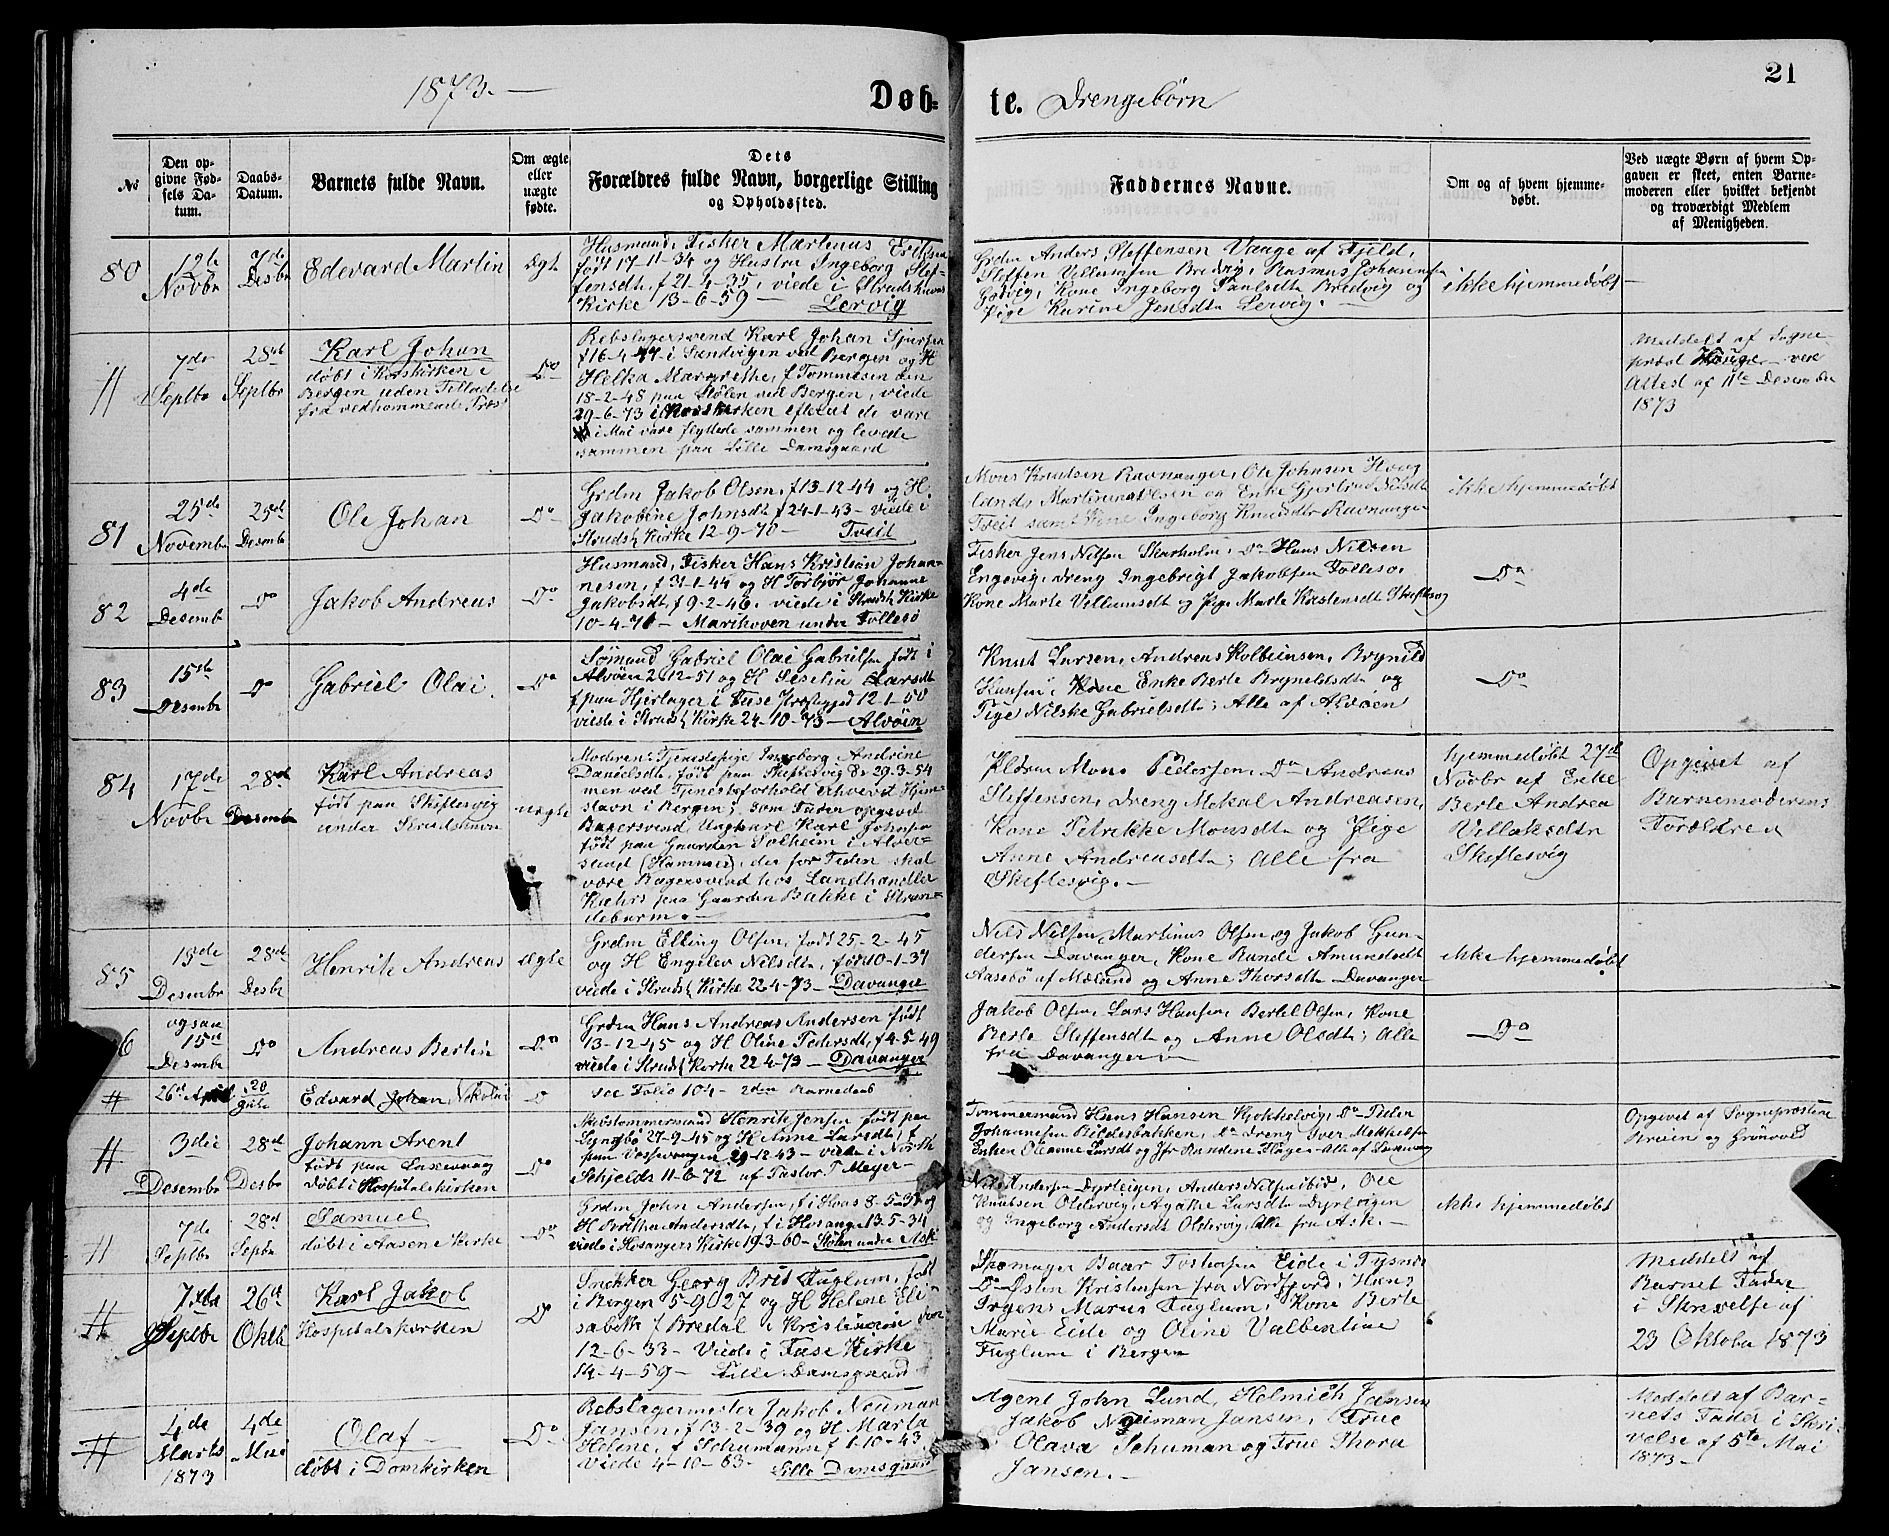 21
1873.—
Døb-
te. Drengebørn
No
Den op-
givne Fød-
sels Da-
tum.
Daabs-
Datum.
Barnets fulde Navn.
Om ægte
eller
uægte
fødte.
Dets
Forældres fulde Navn, borgerlige Stilling
og Opholdssted.
Faddernes Navne.
Om og af hvem hjemme-
døbt.
Ved uægte Børn af hvem Op-
gaven er skeet, enten Barne-
moderen eller hvilket bekjendt
og troværdigt Medlem
af Menigheden.
80
12te
Novbr
7de
Desbr
Edevard Martin
Ægte
Husmand, Fisker Martinus Eriksen
født 17-11-34 og Hustru Ingeborg Stef-
fensdt, f 21-4-35, viede i Strudshavns
Kirke 13-6-59 — Lervig
Grdm Anders Steffensen Vaage af Fjeld,
Steffen Villumsen Bredvig, Rasmus Johannesen
Godvig, Kone Ingeborg Paulsdtr Bredvig og
Pige Karine Jensdtr Lervig. —
ikke hjemmedøbt
#
7de
Septbr
28de
Septbr
Karl Johan
døbt i Korskirken i
Bergen uden Tilladelse
fra vedkommende Præst
Do
Rebslagersvend Karl Johan Sjursen
f 16-4-44 i Sandvigen ved Bergen og H
Helka Margrethe, f Tommesen den
18-2-48 paa Stølen ved Bergen, viede
29-6-73 i Korskirken efterat de vare
i Mai vare flyttede sammen og levede
sammen paa Lille Damsgaard
Meddelt af Sogne
præst Hauge ved
Attest af 11te Desember
1873
81
25de
Novembr
25de
Desmbr
Ole Johan
Do
Grdm Jakob Olsen, f 13-12-44 og H.
Jakobine Johnsdt f 24-1-43 — viede i
Strudsh Kirke 12-9-70 — Tveit
Mons Knudsen Ravnanger, Ole Johnsen Houg
land, Martinus Olsen og Enke Gjertrud Nilsdt
Tveit samt Kone Ingeborg Knudsdtr Ravnanger
ikke hjemmedøbt
82
4de
Desembr
Do
Jakob Andreas
Do
Husmand, Fisker Hans Kristian Johan-
nesen, f 31-1-44 og H Torbjør Johanne
Jakobsdt, f 9-2-46, viede i Strudsh Kirke
10-4-71 — Marikoven under Follesø
Fisker Jens Nilsen Skarholm, Do Hans Nilsen
Engevig, dreng Ingebrigt Jakobsen Follesø,
Kone Marte Villumsdt og Pige Marte Karlensdt Skiftesvig
Do
83
15de
Desembr
Do
Gabriel Olai.
Do
Sømand Gabriel Olai Gabrielsen født i
Alvøen 2-12-51 og H Siselia Larsdt
f paa Hjorlager i Fuse Prestegjd 12-1-50
viede i Strudsh Kirke 24-10-73 — Alvøen
Knut Larsen, Andreas Kolbeinsen, Brynild
Hansen, Kone Enke Berte Bryneldsdt og
Pige Nilske Gabrielsdt; Alle af Alvøen
Do
84
17de
Novbr
28de
Desembr
Karl Andreas
født paa Skiftesvig
under Strudshavn
uægte
Moderen: Tjenestepige Ingeborg Andrine
Danielsdt, født paa Skiftesvig 29-3-54
men ved Tjenesteforhold erhvervet Hjem-
stavn i Bergen; som Fader opgived
Bagersvend, Ungkarl Karl Johnsen
født paa Gaarden Solheim i Alver-
sund (Hammer), der for Tiden skal
være Bagersvend hos Landhandler
Kahrs paa Gaarden Bakke i Stran-
debarm. —
Mons Pedersen, Do Andreas
Steffensen, Dreng Mikal Andreasen,
Kone Petrikke Monsdt og Pige
Anne Andreasdt; Alle fra
Skiftesvig. —
hjemmedøbt 27de
Novbr af Enke
Berte Andrea
Villaksdtr
Skiftesvig
Opgivet af
Barnemoderens
Forældre
85
13de
Desembr
28de
Desbr
Henrik Andreas
ægte
Grdm Elling Olsen, født 25-2-45
og H Engelev Nilsdt, født 10-1-37
viede i Strudsh Kirke 22-4-73 — Davanger
Nils Nilsen, Martinus Olsen og Jakob Gun-
dersen Davanger, Kone Runde Amundsdt
Aasebø af Mæland og Anne Thorsdt Davanger
ikke hjemmedøbt
6
ogsaa
15de
Desembr
Do
Andreas Bertin
Do
Grdm Hans Andreas Andersen født
13-12-45 og H Oline Pedersdt, f 4-5-49
viede i Strudsh Kirke 22-4-73 — Davanger
Jakob Olsen, Lars Hansen, Bertel Olsen, Kone
Berte Steffensdt og Anne Olsdt; Alle
fra Davanger —
Do
#
26de April
20
Juli
Edvard Johan, Nikolai
Do
see Folio 104 — 2den Barnedaab
#
3die
Desembr
28de
Desbr
Johann Arent
født paa Laxevaag
døbt i Hospitalskirken
Do
Skibstømmermand Henrik Jensen født paa
Lyngbø 27-9-45 og H Anne Larsdt, f
paa Vossevangen 29-12-43 — viede i North
Schjelds 11-6-72 af Pastor T Meyer —
Tømmermand Hans Hansen Kjøkkelvig, Do Peder
Johannesen Bildesbakken, Do dreng Iver Mekkelsen
Enken Oleanne Larsdt og Jfr Randine Hagen — Alle af Laxevaag
Opgivet af Sogneprestene
Kreien og Grønvold
#
7de
Septbr
28de
Septbr
Samuel
døbt i Aasene Kirke
Do
Grdm John Andersen, f i Hoas 8-5-35 og
H Britha Andersdt, f i Hosanger 13-5-34
viede i Hosangers Kirke 19-3-60 — Stølen under Ask
Nils Andersen Dyrleigen, Anders Nilsen ibid, Ole
Knutsen Oldervig, Agathe Larsdt Dyrleigen
og Ingeborg Andersdt Oldervig, Alle fra Ask. —
ikke hjemmedøbt
#
7de
Septbr
26de
Oktbr
Karl Jakob
Hospitalskirken
Do
Snekker Georg Brit Fuglum, født
i Bergen 5-9-27 og H Helene Eli-
sabeth f Bredal i Kristiania den
12-6-33 — Viede i Fuse Kirke
14-4-59 — Lille Damsgaard
Skomager Baar Tostensen Eide i Tysnes
Do Østen Kristensen fra Nordfjord, Hans
Irgens Marus Fuglum, Kone Berte
Marie Eide og Oline Valbentine
Fuglum i Bergen
Meddelt af
Barnets Fader
i Skrivelse af
23 Oktober 1873
#
4de
Marts
1873
4de
Mai
Olaf —
døbt i Domkirken
Do
Rebslagermester Jakob Neuman
Jansen, f 13-2-39 og H Marta
Helene, f Schumann f 1-10-43,
viede 4-10-63 — Lille Damsgaard
Agent John Lund, Helmich Jansen
Jakob Neuman Jansen, Frue
Olava Schuman og Frue Thora
Jansen. —
Meddelt af Bar-
nets Fader i Skri-
velse af 5te Mai
1873 —